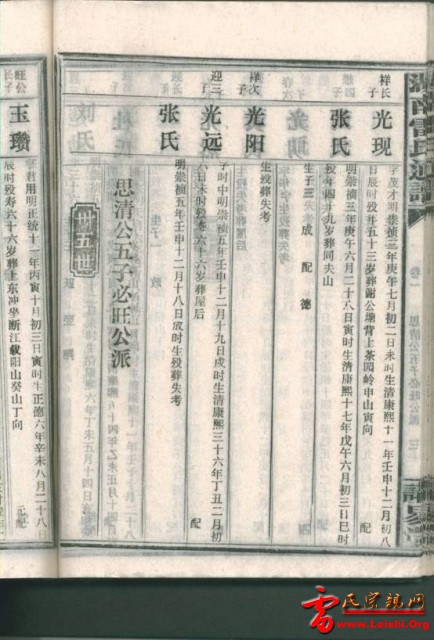 祥长子
光现
字茂才明崇祯三年庚午七月初二日未时生清康熙十一年壬申十二月初八
日辰时殁年五十三岁葬谢公塘背上茶园岭申山寅向
配
张氏
明崇祯三年庚午六月二十八日寅时生清康熙十七年戊午六月初三日巳时
殁年四十九岁葬同夫山
生子三 成 配 德
祥次子
光阳
生殁葬失考
迎三子
光远
字时中明崇祯五年壬申十二月十九日戌时生清康熙三十六年丁丑二月初
六日未时殁寿六十六岁葬屋后
配
张氏
明崇祯五年壬申十二月十八日戌时生殁葬失考
思清公五子必旺公派
卅五世
旺公长子
玉瓒
字君用明正统十一年丙寅十月初三日寅时生正德六年辛未八月二十八
辰时殁寿六十六岁葬上东冲坐断江载阳山癸山丁向
元配
卷一
思清公五子必旺公派
三
雷氏宗親网
www.Leishi.Org